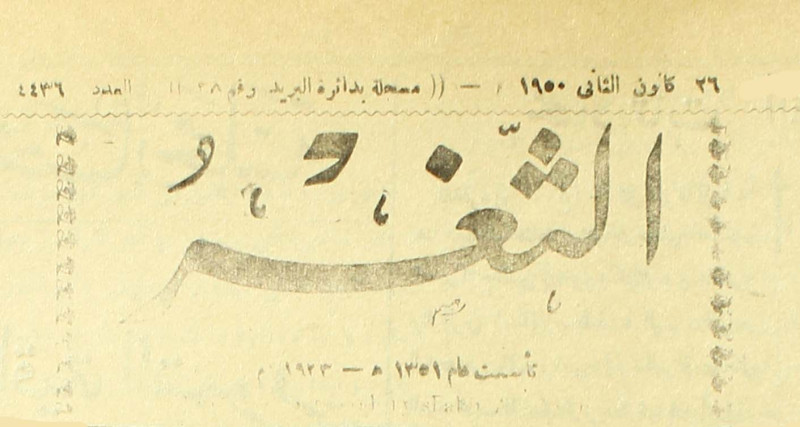 ٢٦ كانون الثاني ١٩٥٠ — (( مسجلة بدائرة البريد ورقم ٢٨ )) العدد ٤٤٣٦
الثَّغْرُ
تأسست عام ١٣٥١ ه — ١٩٣٣ م